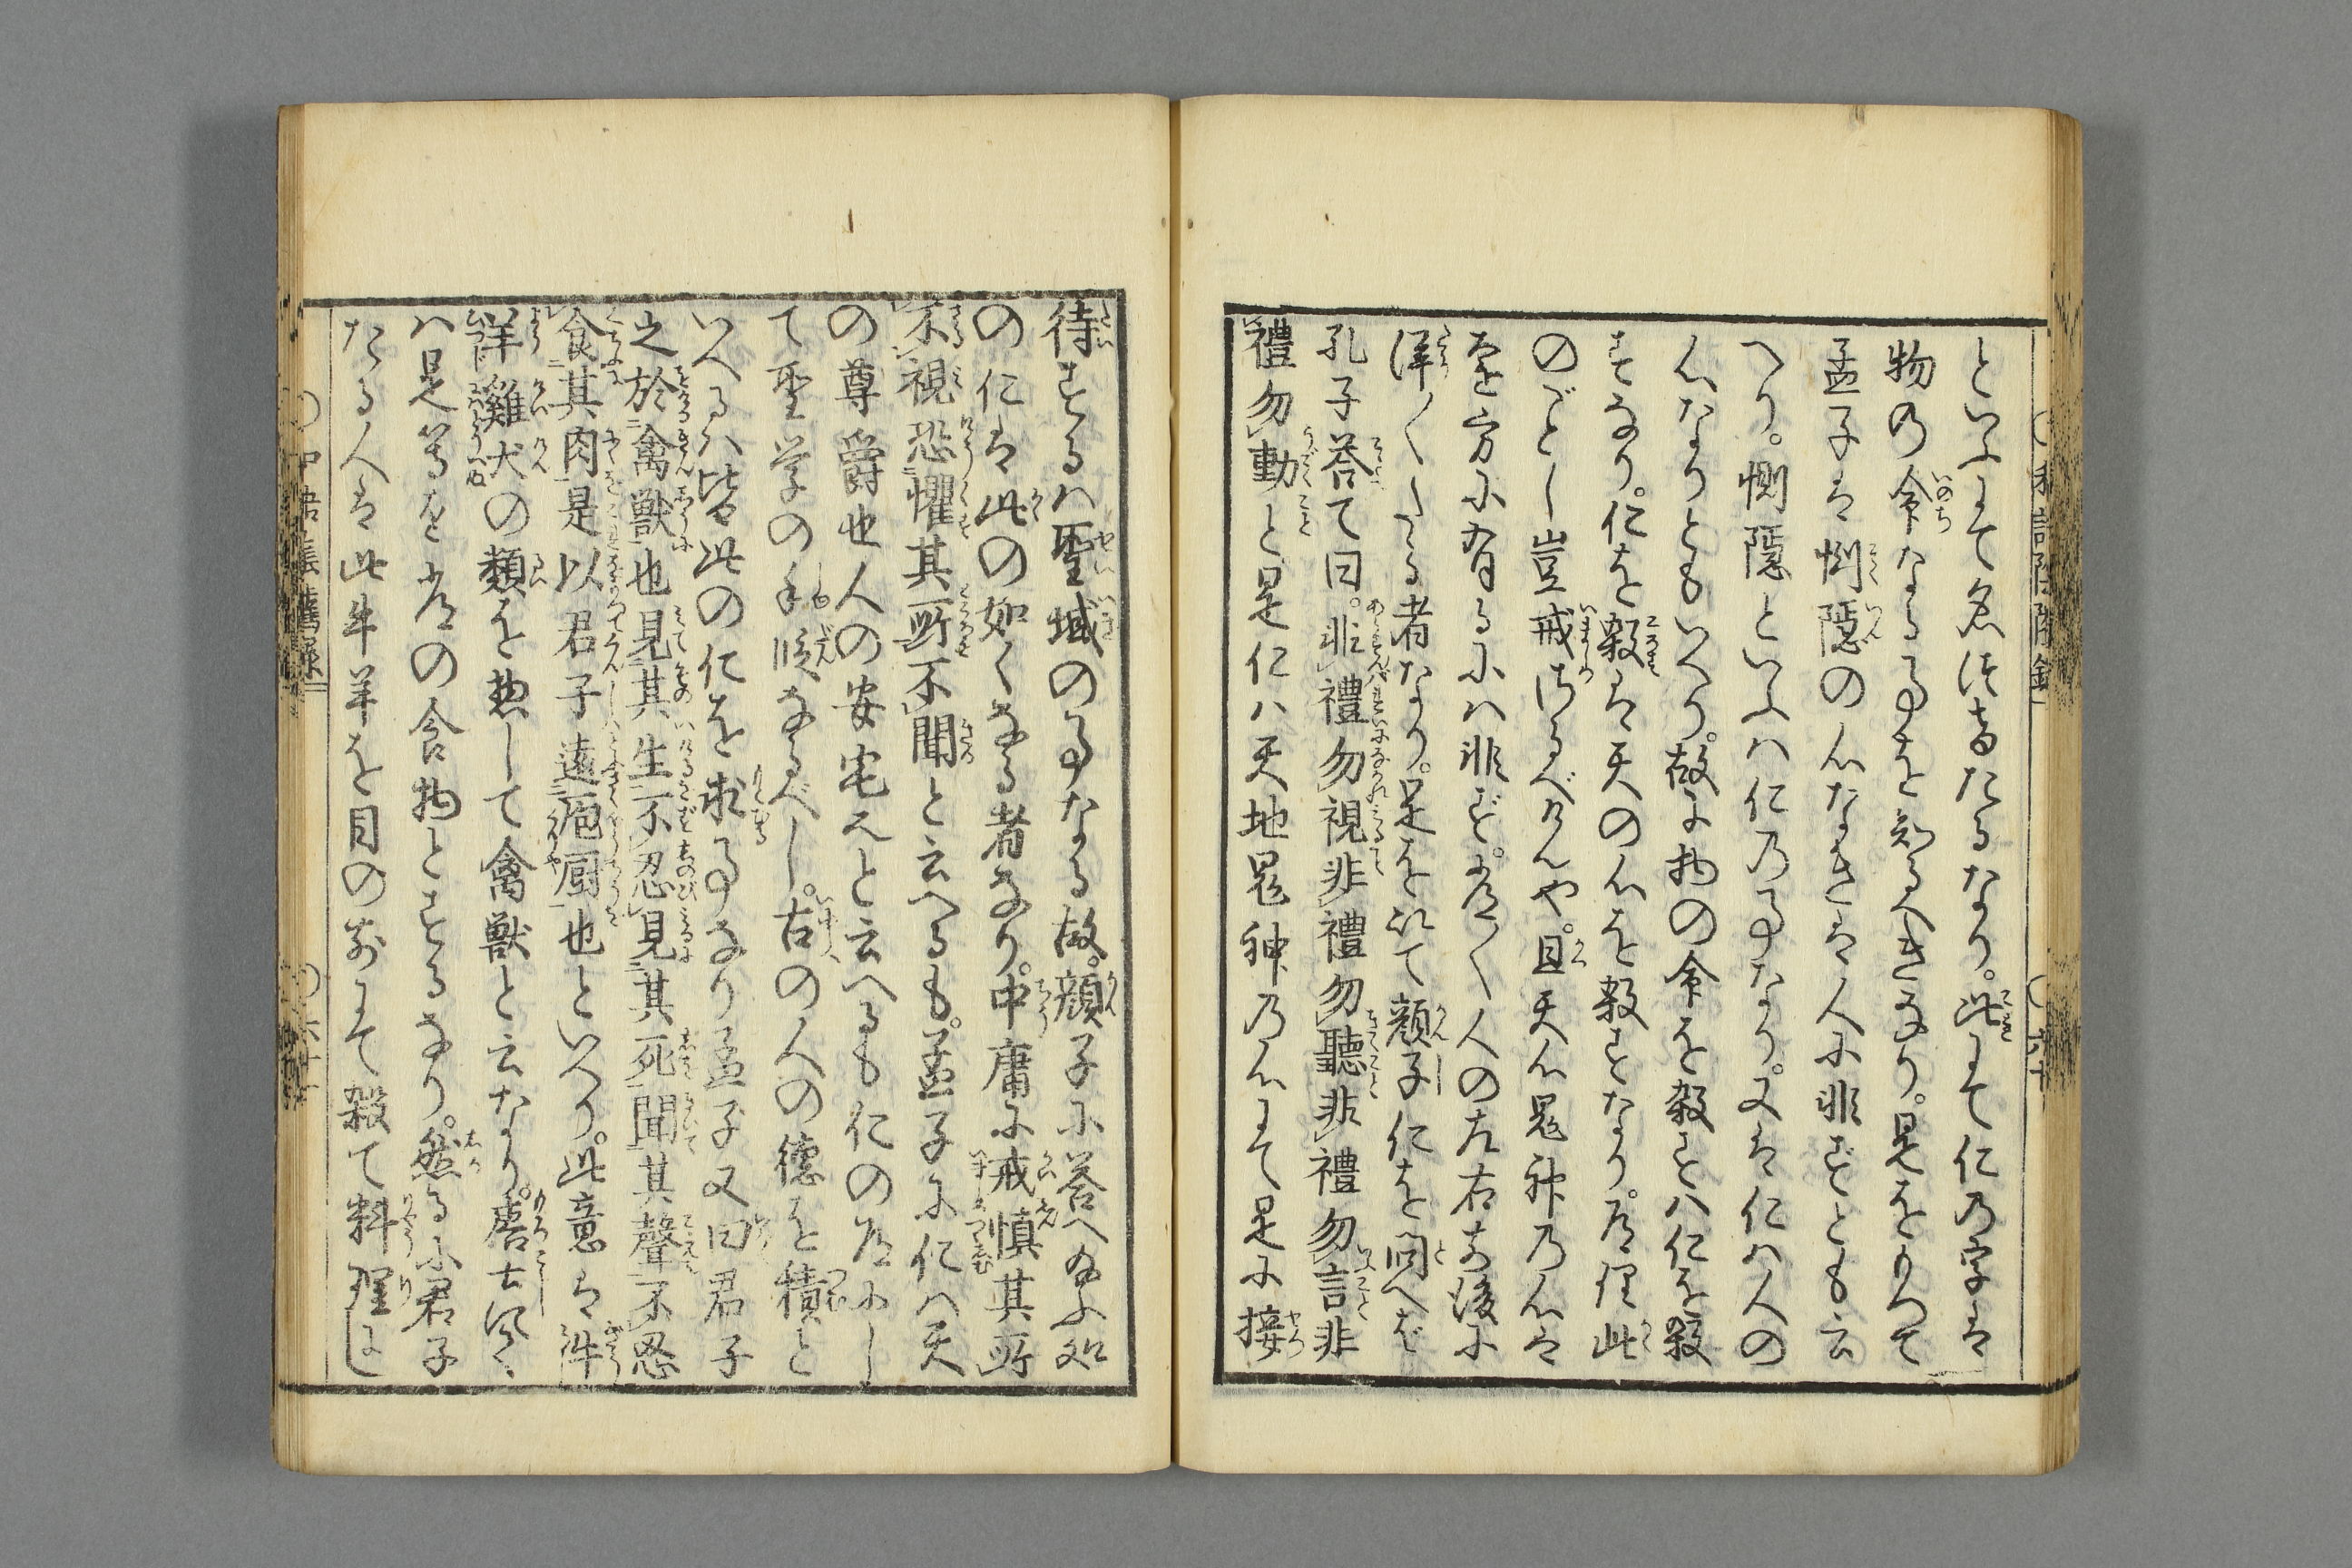 といふにて名付けたるなり。此にて仁の字は
物の命なる事を知るべきなり。是をもつて
孟子は惻隠の心なきは人に非ずとも云
へり。惻隠といふハ仁の事なり。又は仁は人の
心なりともいへり。故に物の命を殺すハ仁を殺
すなり。仁を殺は天の心を殺すとなり。道理此
のごとし豈戒ざるべけんや。且天心鬼神の心は
遠方に有るにハ非ず。常〻人の左右前後に
洋〱たる者なり。是を以て顔子仁を問へば
孔子答て曰。非禮勿視非禮勿聽非禮勿言非
禮勿動と是仁ハ天地鬼神の心にて是に接
待するハ聖域の事なる故。顔子に答へ給ふ処
の仁は此の如くなる者なり。中庸に戒慎其所
不視恐懼其所不聞と云へるも。孟子に仁ハ天
の尊爵也人の安宅也と云へるも仁の道にし
て聖学の手段なるべし。古の人の徳を積と
いへるハ皆此の仁を求る事なり孟子又曰君子
之於禽獣也見其生不忍見其死聞其聲不忍
食其肉是以君子遠庖厨也といへり。此意は牛
羊雞犬の類を惣して禽獣と云なり。唐土にて
ハ是等を常の食物とするなり。然るに君子
たる人は此牛羊を目の前にて殺て料理に
〇六十
〇六十一